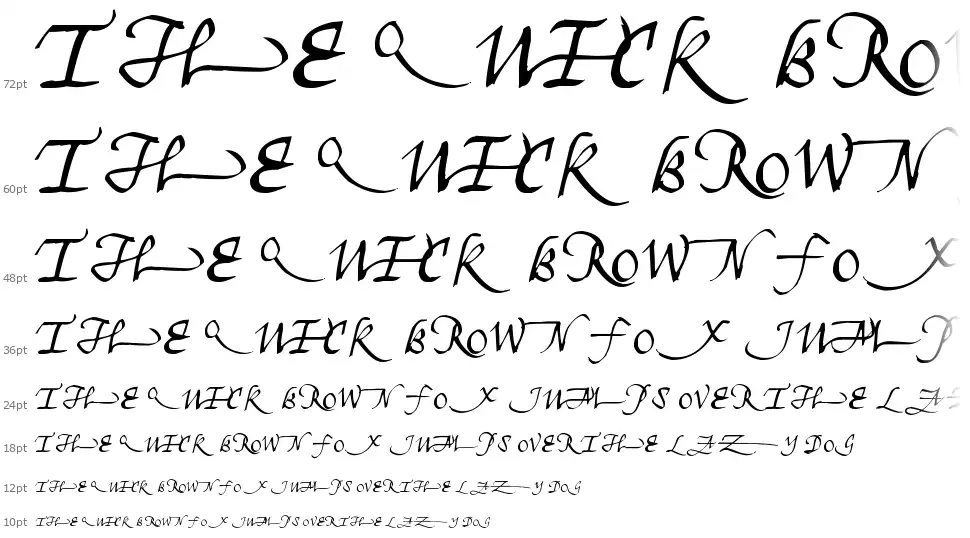 72pt THE QUICK BRO
60pt THE QUICK BROWN
48pt THE QUICK BROWN FOX
36pt THE QUICK BROWN FOX JUMP
24pt THE QUICK BROWN FOX JUMPS OVER THE LAZ
18pt THE QUICK BROWN FOX JUMPS OVER THE LAZY DOG
12pt THE QUICK BROWN FOX JUMPS OVER THE LAZY DOG
10pt THE QUICK BROWN FOX JUMPS OVER THE LAZY DOG